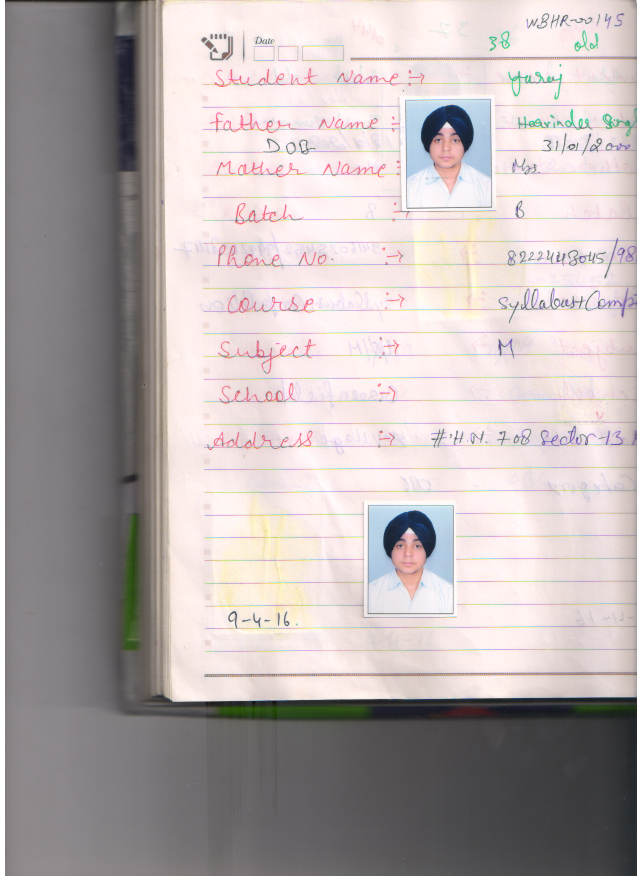 WBHR-00145
Date
38 old
Student Name :→ yuraj
Father Name : Harvinder Singh
DOB 31/01/2000
Mather Name : Mrs.
Batch :→ B
Phone No. :→ 8222448045/98
Course :→ Syllabus+Comp
Subject :→ M
School :→
Address :→ #H.N. 708 Sector-13
9-4-16.